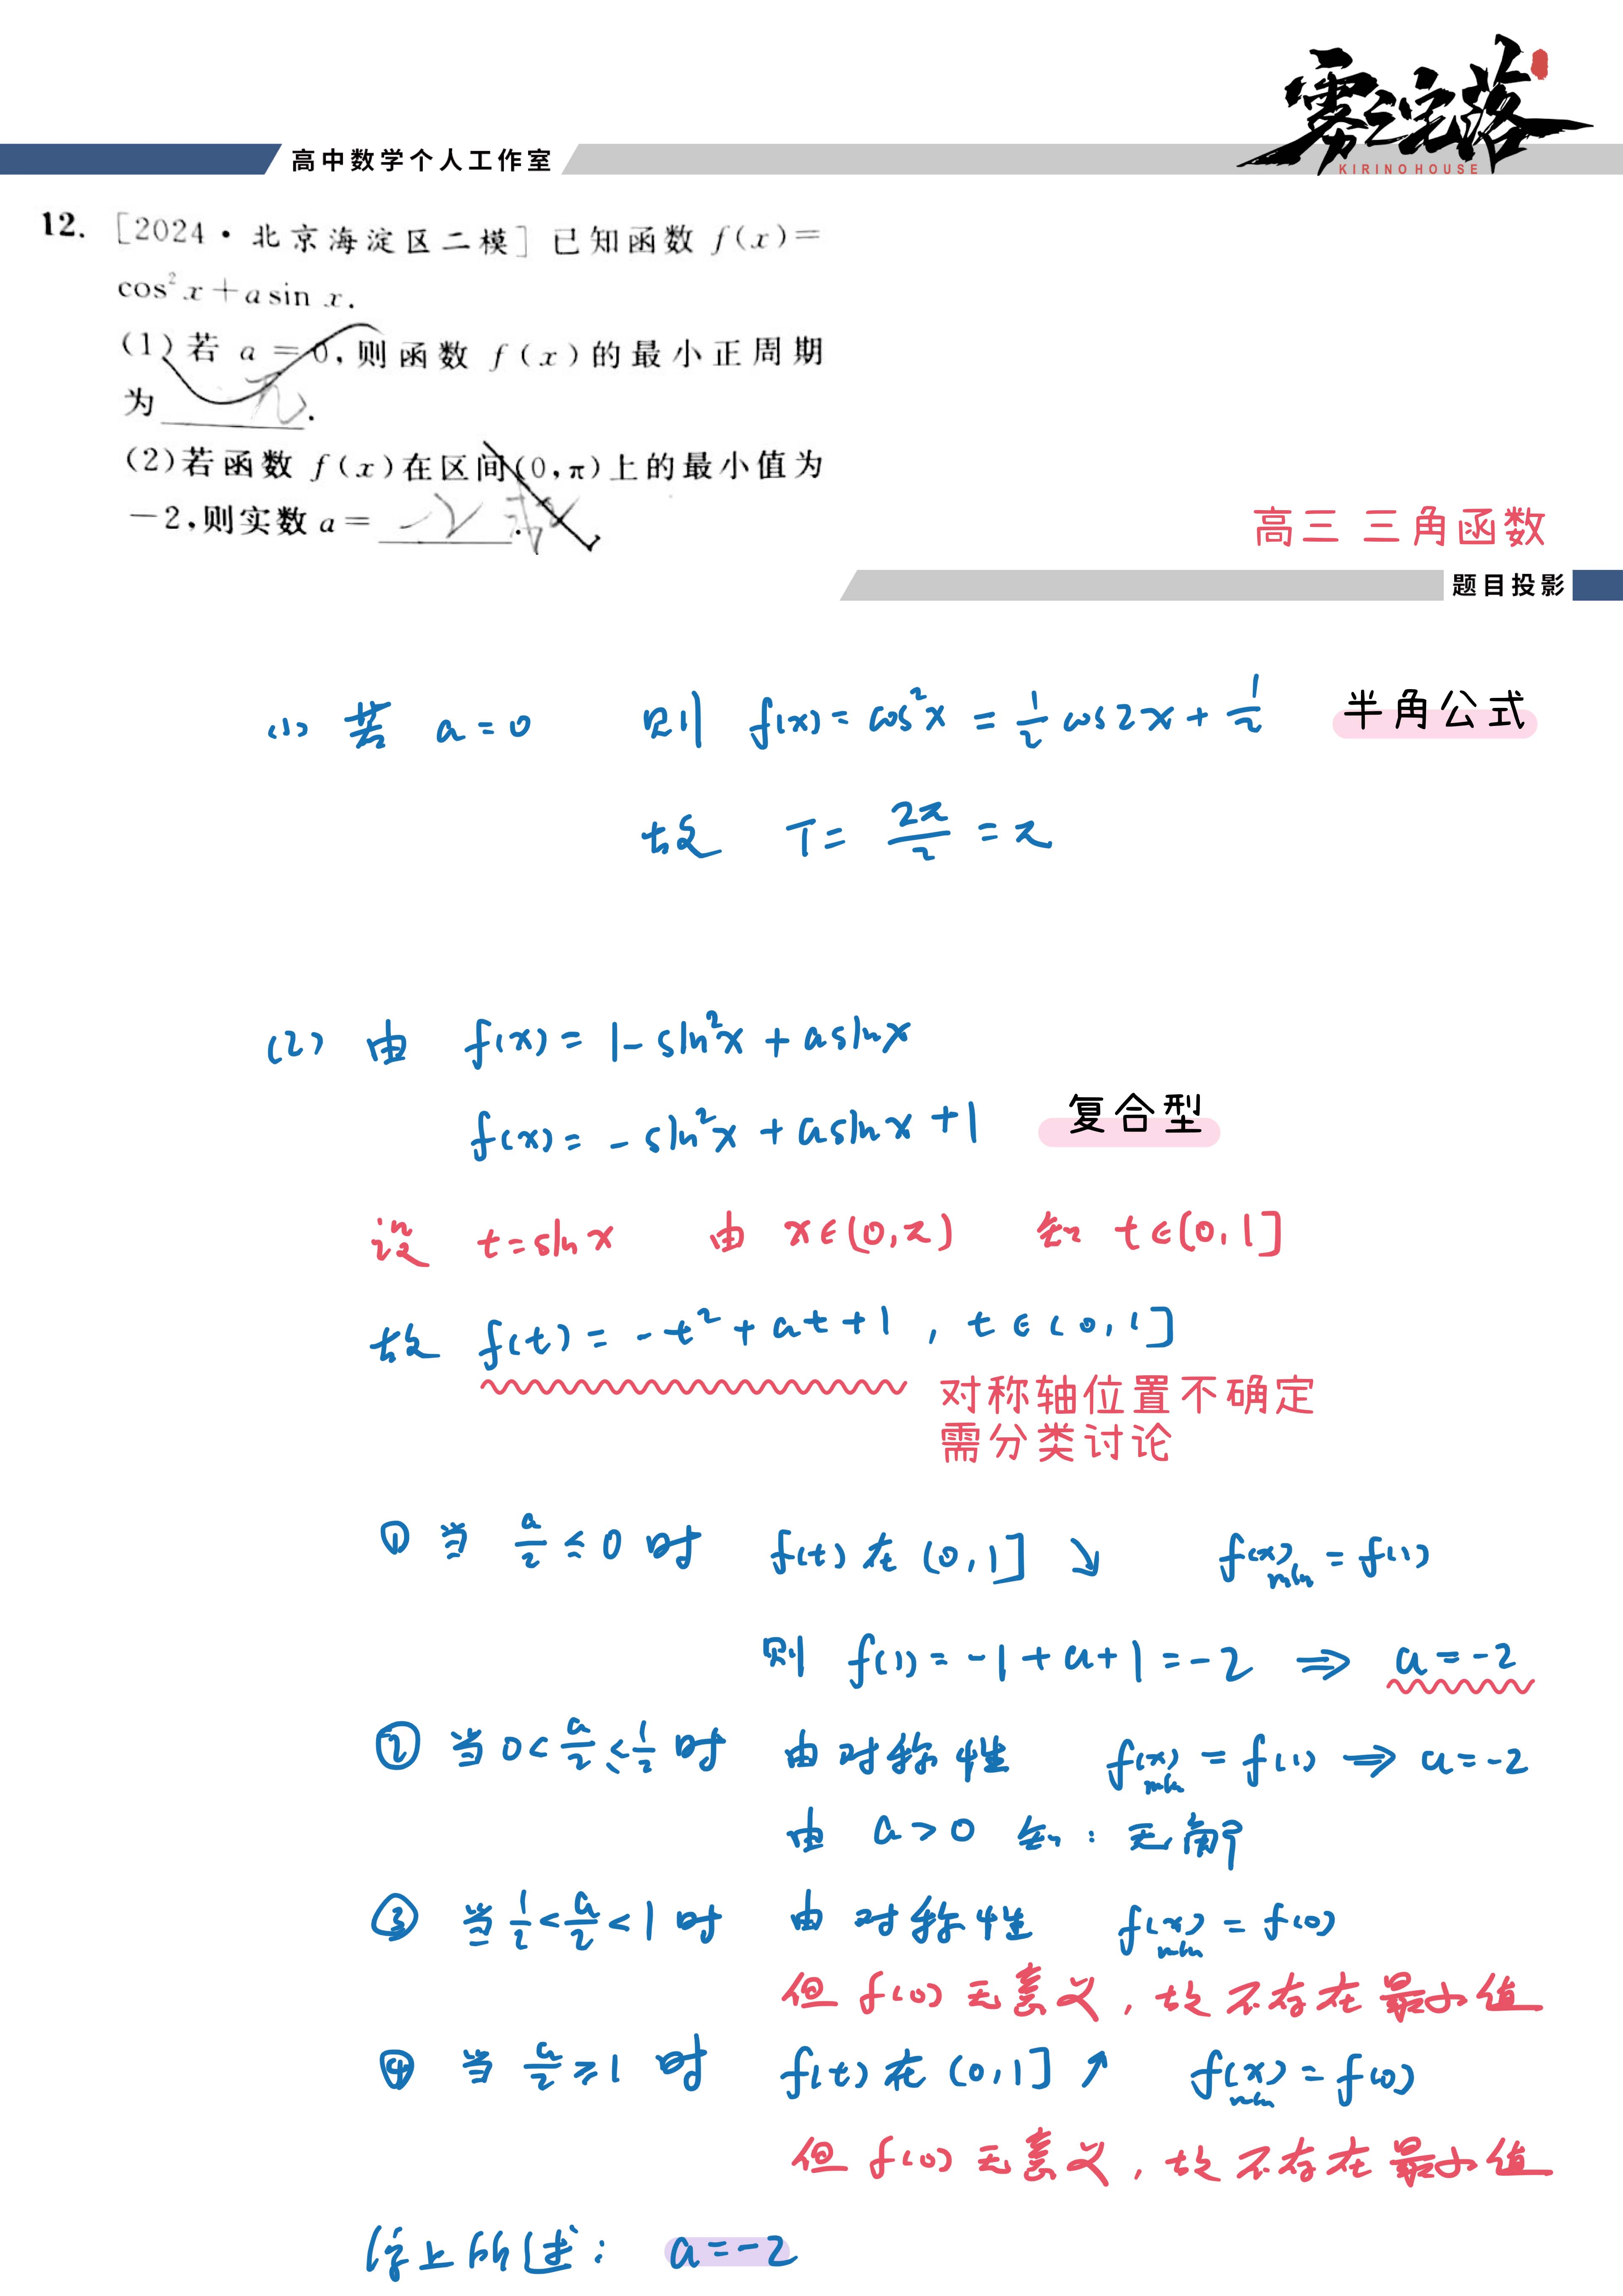 雾之宅落
KIRINO HOUSE
高中数学个人工作室
12. [2024·北京海淀区二模] 已知函数 f(x)=
cos²x+asin x.
(1)若 a=0,则函数 f(x)的最小正周期
为 π.
(2)若函数 f(x)在区间(0,π)上的最小值为
-2,则实数 a= -2 .
高三 三角函数
题目投影
(1) 若 a=0 则 f(x)=cos²x=1/2cos2x+1/2 半角公式
故 T=2π/2=π
(2) 由 f(x)=1-sin²x+asinx
f(x)=-sin²x+asinx+1 复合型
设 t=sinx 由 x∈(0,π) 知 t∈(0,1]
故 f(t)=-t²+at+1, t∈(0,1]
对称轴位置不确定
需分类讨论
① 当 a/2≤0 时 f(t) 在 (0,1] ↘ f(x)min=f(1)
则 f(1)=-1+a+1=-2 ⇒ a=-2
② 当 0<a/2≤1/2 时 由对称性 f(x)min=f(1) ⇒ a=-2
由 a>0 知: 无解
③ 当 1/2<a/2<1 时 由对称性 f(x)min=f(0)
但 f(0) 无意义, 故不存在最小值
④ 当 a/2≥1 时 f(t) 在 (0,1] ↗ f(x)min=f(0)
但 f(0) 无意义, 故不存在最小值
综上所述: a=-2